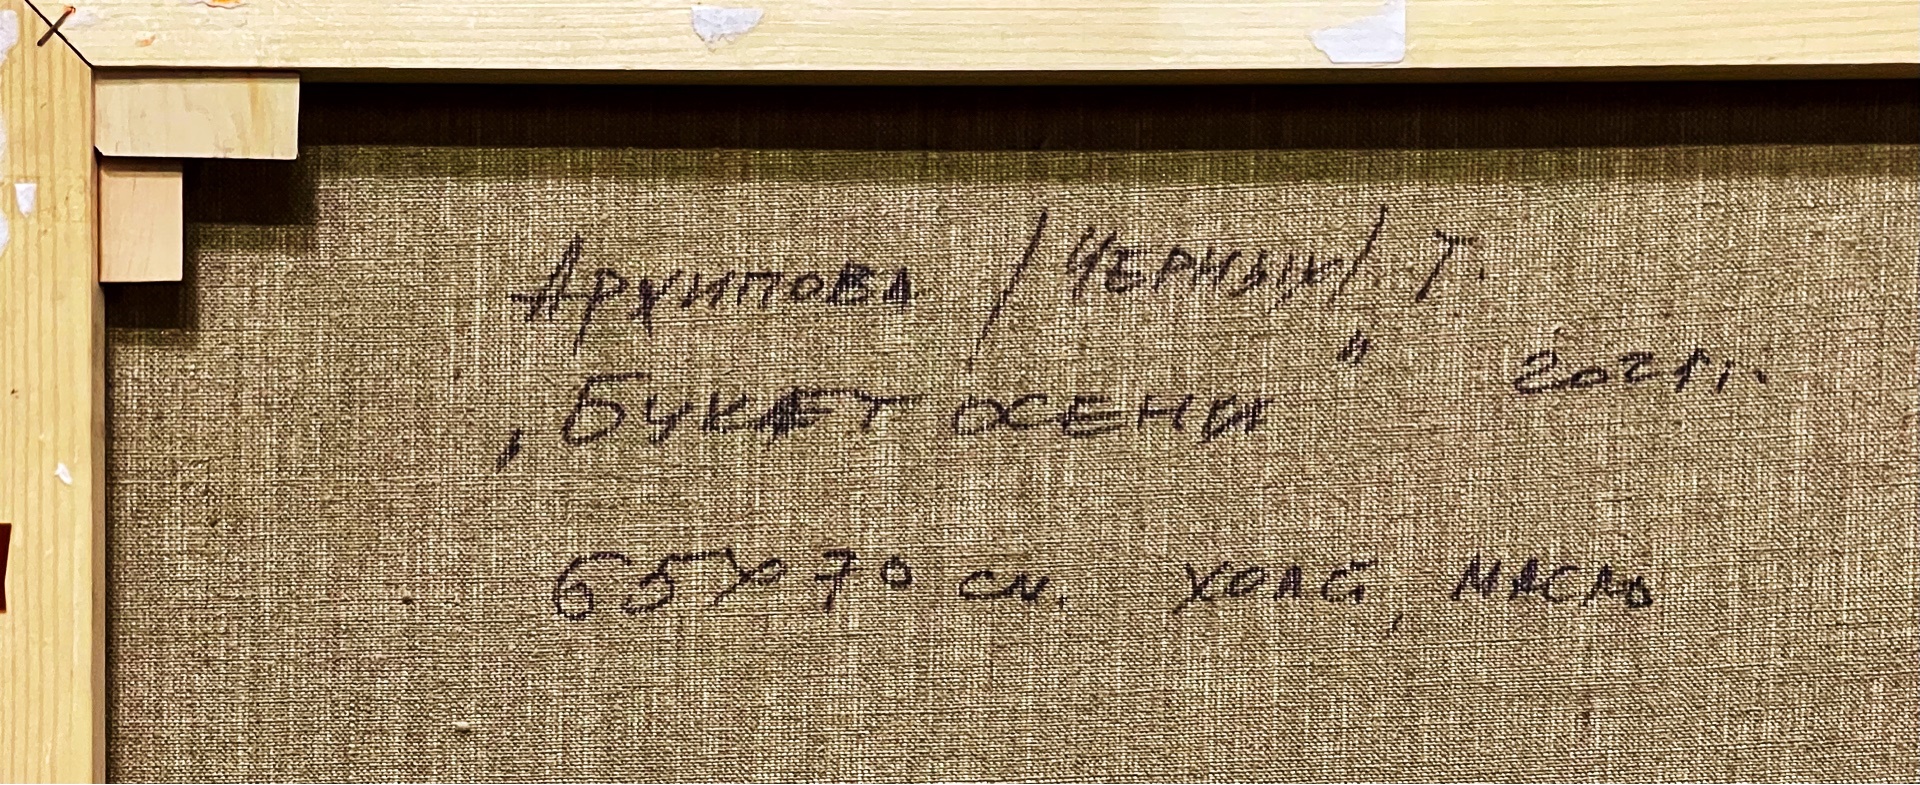 Архипова /Черный/ Т.
„Букет осени" 2021г.
65х70 см. холст, масло